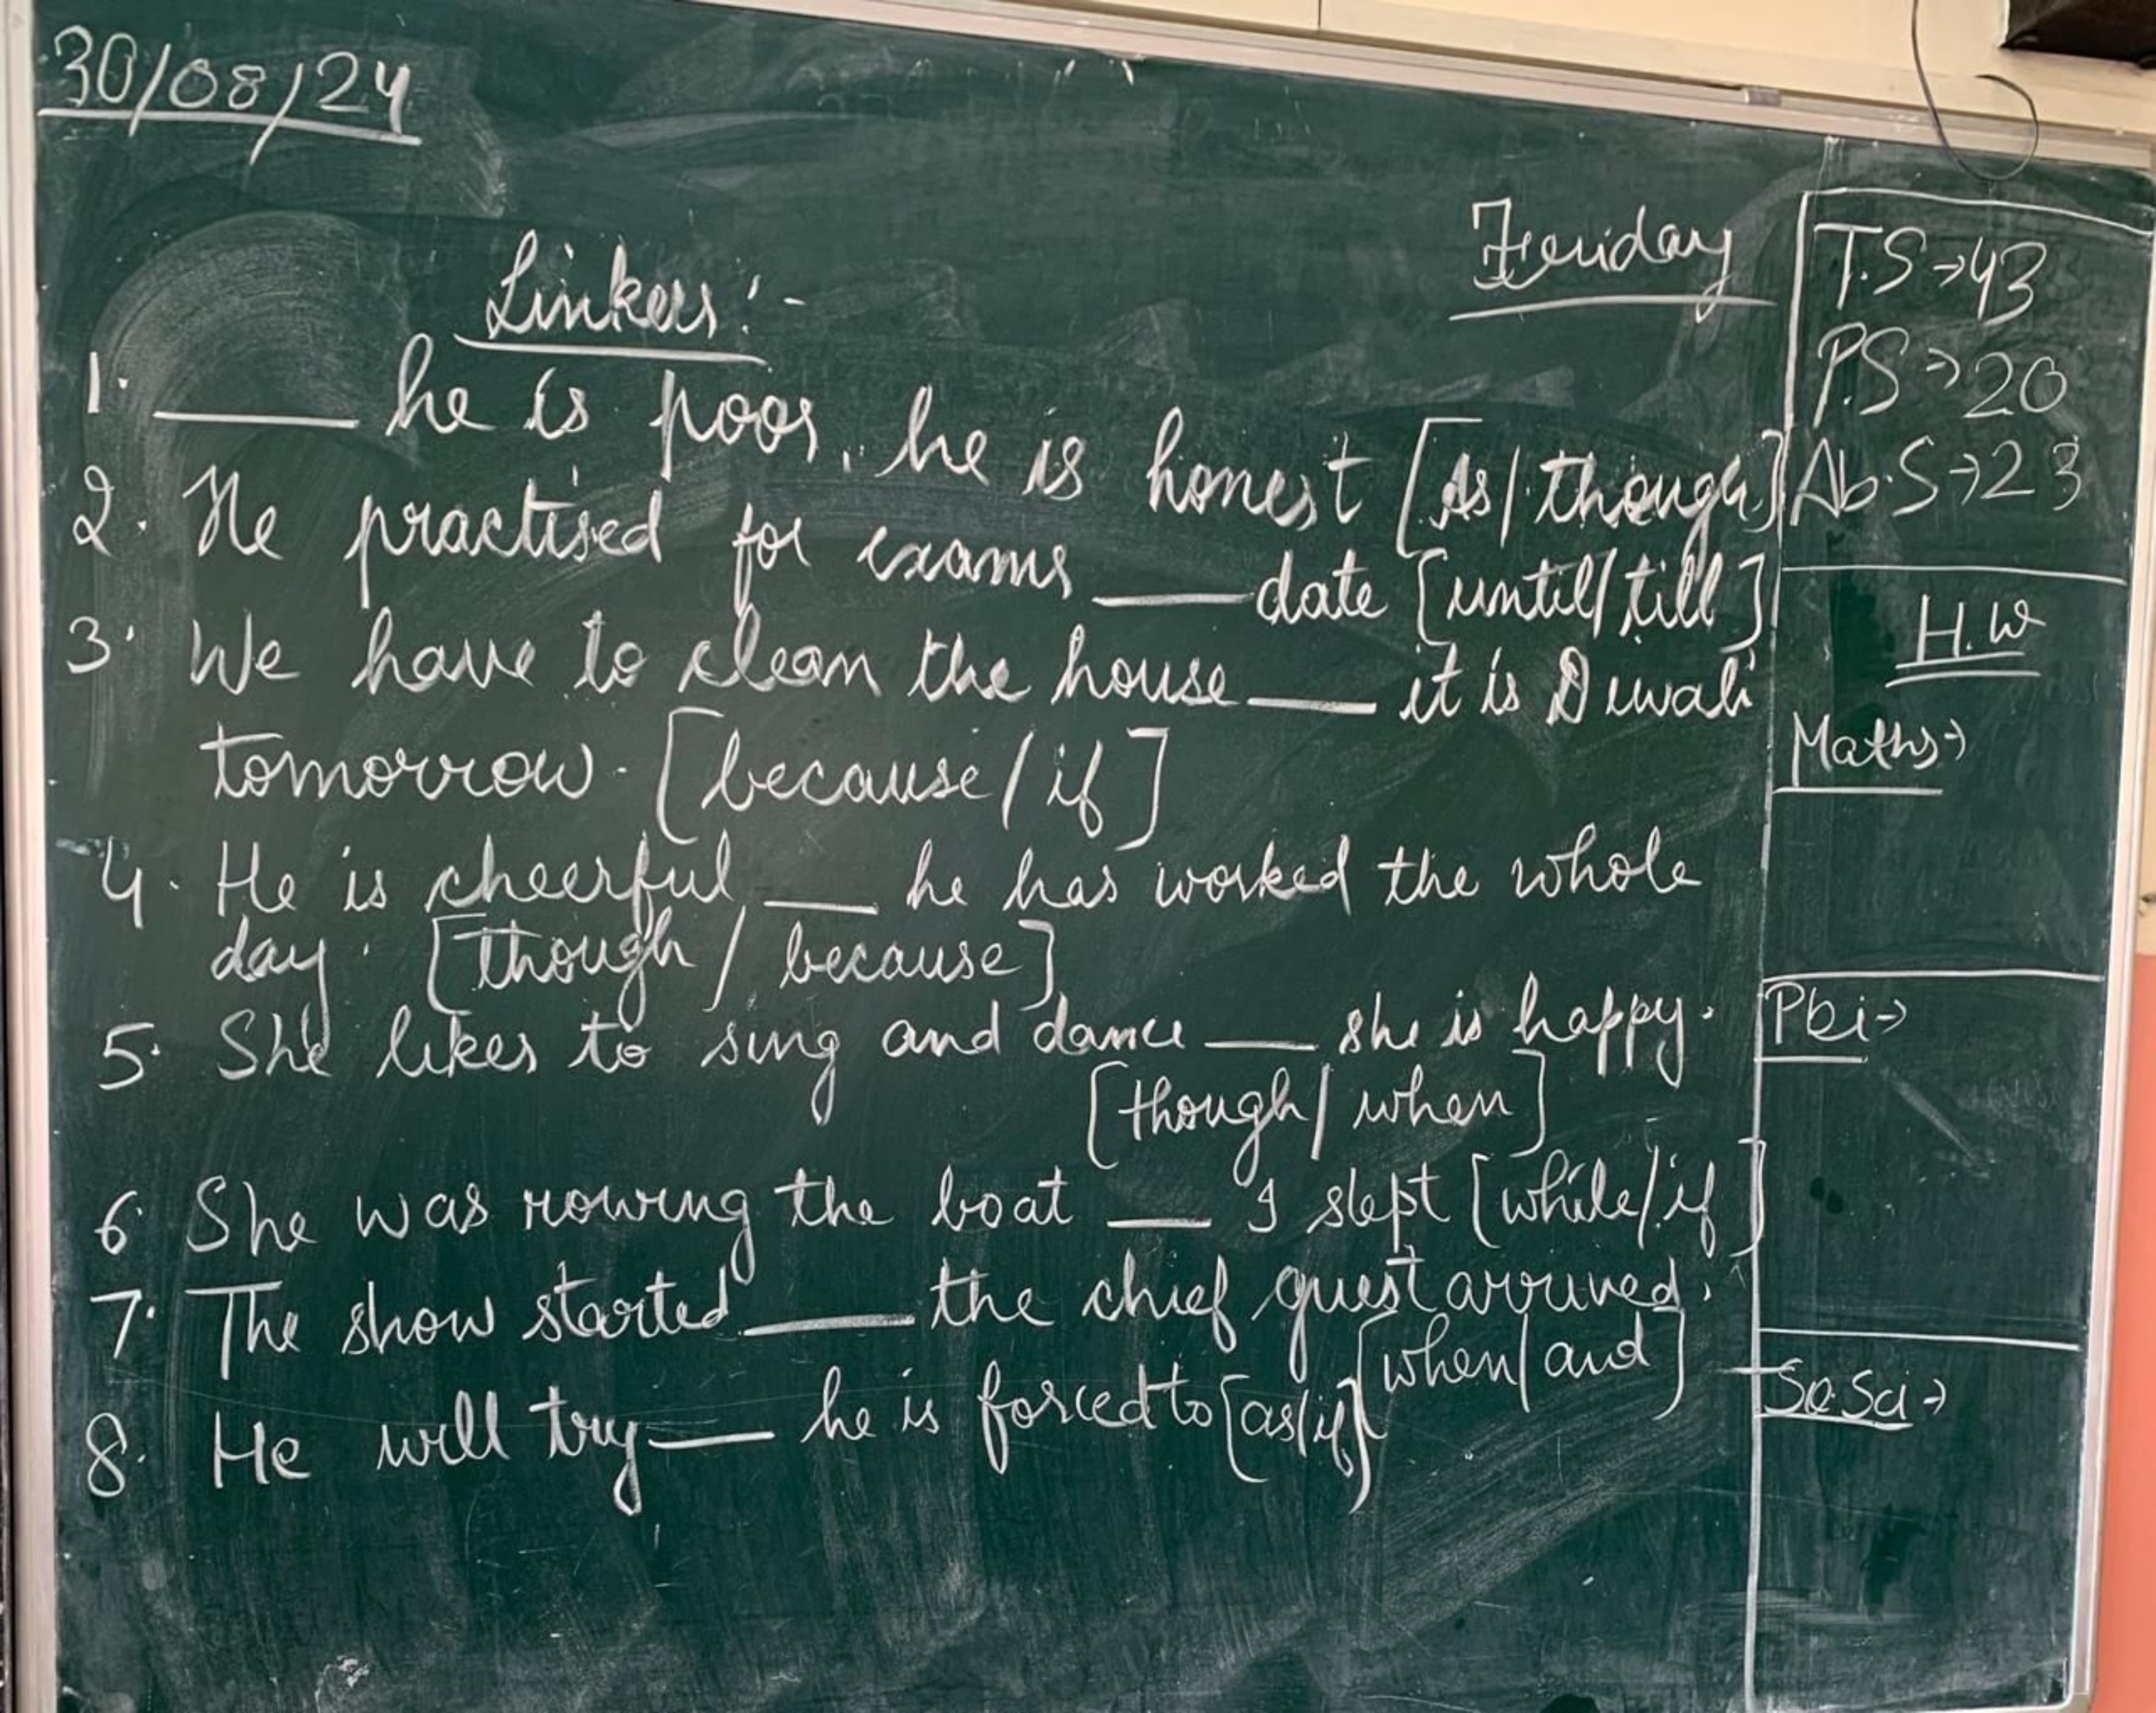 30/08/24
Friday
Linkers:-
1. ____ he is poor, he is honest [As/though]
2. He practised for exams ___ date [until/till]
3. We have to clean the house ___ it is Diwali
tomorrow. [because/if]
4. He is cheerful ___ he has worked the whole
day. [though/because]
5. She likes to sing and dance ___ she is happy.
[though/when]
6. She was rowing the boat ___ I slept [while/if]
7. The show started ____ the chief guest arrived.
[when/and]
8. He will try ___ he is forced to [as/if]
T.S→43
P.S→20
Ab.S→23
H.W
Maths→
Pbi→
So.Sci→